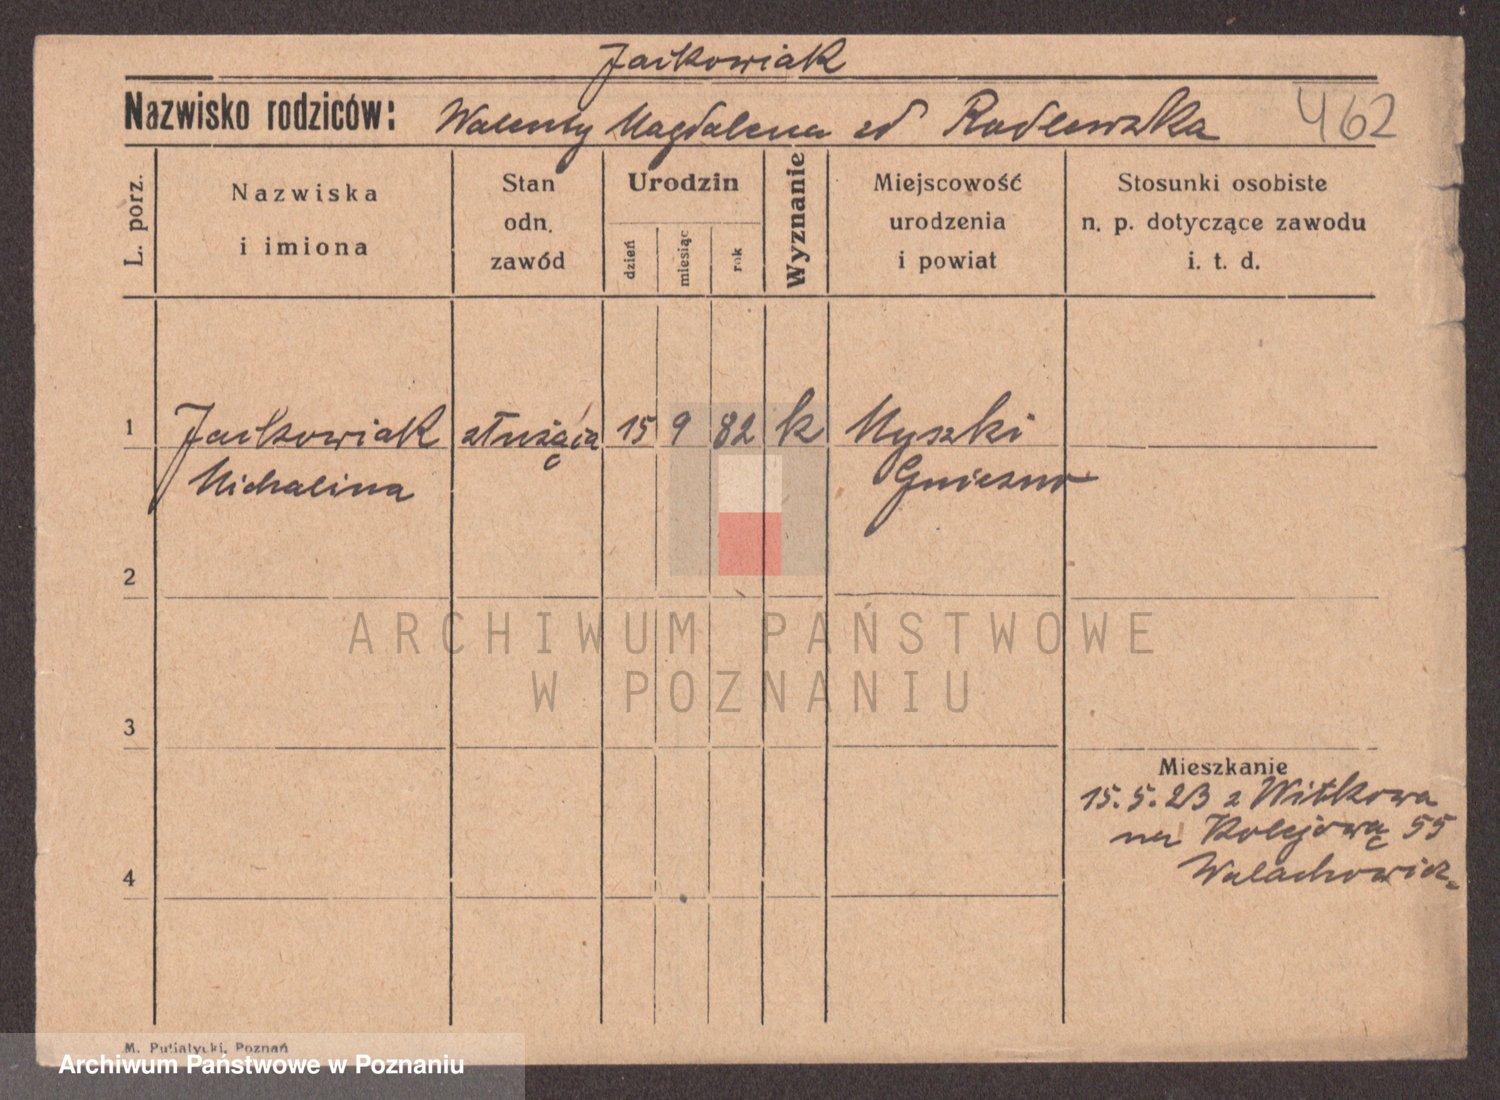 Jaśkowiak
Nazwisko rodziców: Walenty Magdalena zd Radlewska 462
L. porz.
Nazwiska
i imiona
Stan
odn.
zawód
Urodzin
dzień
miesiąc
rok
Wyznanie
Miejscowość
urodzenia
i powiat
Stosunki osobiste
n. p. dotyczące zawodu
i. t. d.
1 Jaśkowiak służąca 15 9 82 k Myszki
Michalina Gniezno
2
ARCHIWUM PAŃSTWOWE
W POZNANIU
3
Mieszkanie
15.5.23 z Witkowa
na Kolejową 55
4
M. Putiatycki, Poznań
Archiwum Państwowe w Poznaniu